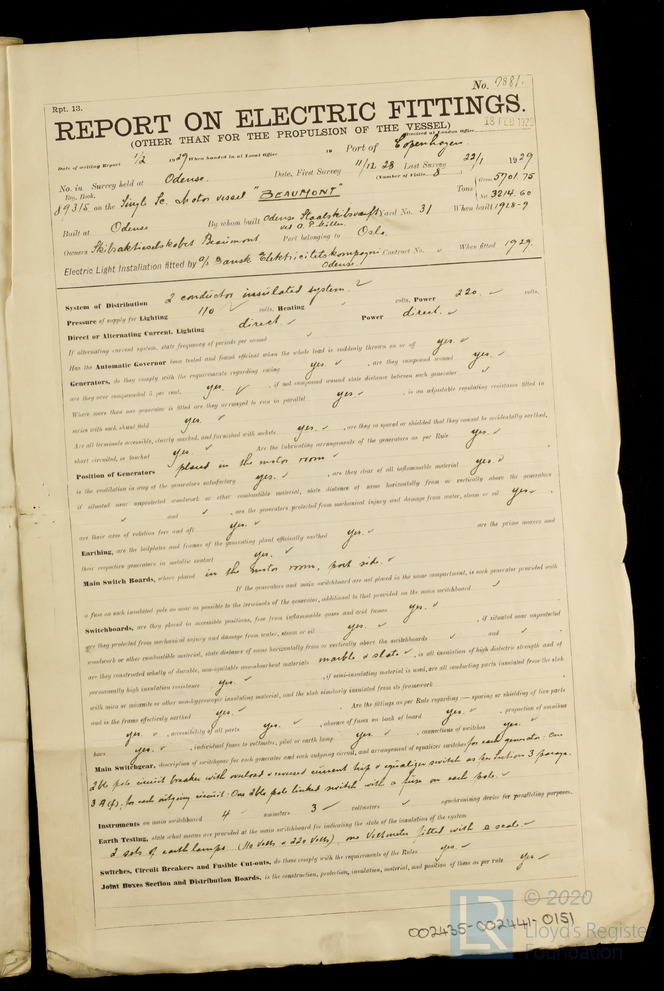 No. 7881.
Rpt. 13.
18 FEB 1929
REPORT ON ELECTRIC FITTINGS.
(OTHER THAN FOR THE PROPULSION OF THE VESSEL)
Received at London Office
Date of writing Report 1/2 1929 When handed in at Local Office 19 Port of Copenhagen
No. in Survey held at Odense. Date, First Survey 11/12 28 Last Survey 22/1 1929
Reg. Book. (Number of Visits 8)
89315 on the Single Sc. Motor vessel "BEAUMONT" Tons { Gross 5701.75 Net 3214.60
Built at Odense By whom built Odense Staalskibsværft ved A. P. Möller. Yard No. 31 When built 1928-9
Owners Skibsaktieselskabet Beaumont Port belonging to Oslo.
Electric Light Installation fitted by A/S Dansk Elektricitetskompagni Odense. Contract No. When fitted 1929.
System of Distribution 2 conductor insulated system. ✓
Pressure of supply for Lighting 110 ✓ volts, Heating ✓ volts, Power 220. ✓ volts.
Direct or Alternating Current, Lighting direct. ✓ Power direct. ✓
If alternating current system, state frequency of periods per second ✓
Has the Automatic Governor been tested and found efficient when the whole load is suddenly thrown on or off yes. ✓
Generators, do they comply with the requirements regarding rating yes. ✓ , are they compound wound yes. ✓
are they over compounded 5 per cent. yes. ✓ , if not compound wound state distance between each generator ✓
Where more than one generator is fitted are they arranged to run in parallel yes ✓ , is an adjustable regulating resistance fitted in
series with each shunt field yes. ✓
Are all terminals accessible, clearly marked, and furnished with sockets yes. ✓ , are they so spaced or shielded that they cannot be accidentally earthed,
short circuited, or touched yes. ✓ Are the lubricating arrangements of the generators as per Rule yes. ✓
Position of Generators placed in the motor room ✓
is the ventilation in way of the generators satisfactory yes. ✓ , are they clear of all inflammable material yes. ✓
if situated near unprotected woodwork or other combustible material, state distance of same horizontally from or vertically above the generators
✓ and ✓ , are the generators protected from mechanical injury and damage from water, steam or oil yes. ✓
are their axes of rotation fore and aft yes. ✓
Earthing, are the bedplates and frames of the generating plant efficiently earthed yes. ✓ are the prime movers and
their respective generators in metallic contact yes. ✓
Main Switch Boards, where placed in the motor room, port side. ✓
If the generators and main switchboard are not placed in the same compartment, is each generator provided with
a fuse on each insulated pole as near as possible to the terminals of the generator, additional to that provided on the main switchboard ✓
Switchboards, are they placed in accessible positions, free from inflammable gases and acid fumes yes. ✓
are they protected from mechanical injury and damage from water, steam or oil yes. ✓ , if situated near unprotected
woodwork or other combustible material, state distance of same horizontally from or vertically above the switchboards ✓ and ✓
are they constructed wholly of durable, non-ignitable non-absorbent materials marble & slate ✓ , is all insulation of high dielectric strength and of
permanently high insulation resistance yes. ✓ , if semi-insulating material is used, are all conducting parts insulated from the slab
with mica or micanite or other non-hygroscopic insulating material, and the slab similarly insulated from its framework ✓
and is the frame effectively earthed yes. ✓ Are the fittings as per Rule regarding:— spacing or shielding of live parts
yes. ✓ , accessibility of all parts yes. ✓ , absence of fuses on back of board yes. ✓ , proportion of omnibus
bars yes. ✓ , individual fuses to voltmeter, pilot or earth lamp yes. ✓ , connections of switches yes. ✓
Main Switchgear, description of switchgear for each generator and each outgoing circuit, and arrangement of equalizer switches for each generator: One
2ble pole circuit breaker with overload & reversed current trip & equalizer switch as per Section 3 parag.
3 A (f), for each outgoing circuit: One 2ble pole linked switch with a fuse on each pole. ✓
Instruments on main switchboard 4 ✓ ammeters 3 ✓ voltmeters ✓ synchronising device for paralleling purposes.
Earth Testing, state what means are provided at the main switchboard for indicating the state of the insulation of the system
2 sets of earth lamps (110 volts & 220 volts), one Voltmeter fitted with Ω scale. ✓
Switches, Circuit Breakers and Fusible Cut-outs, do these comply with the requirements of the Rules yes. ✓
Joint Boxes Section and Distribution Boards, is the construction, protection, insulation, material, and position of these as per rule yes. ✓
© 2020
Lloyd's Register
Foundation
LR
002435-002441-0151